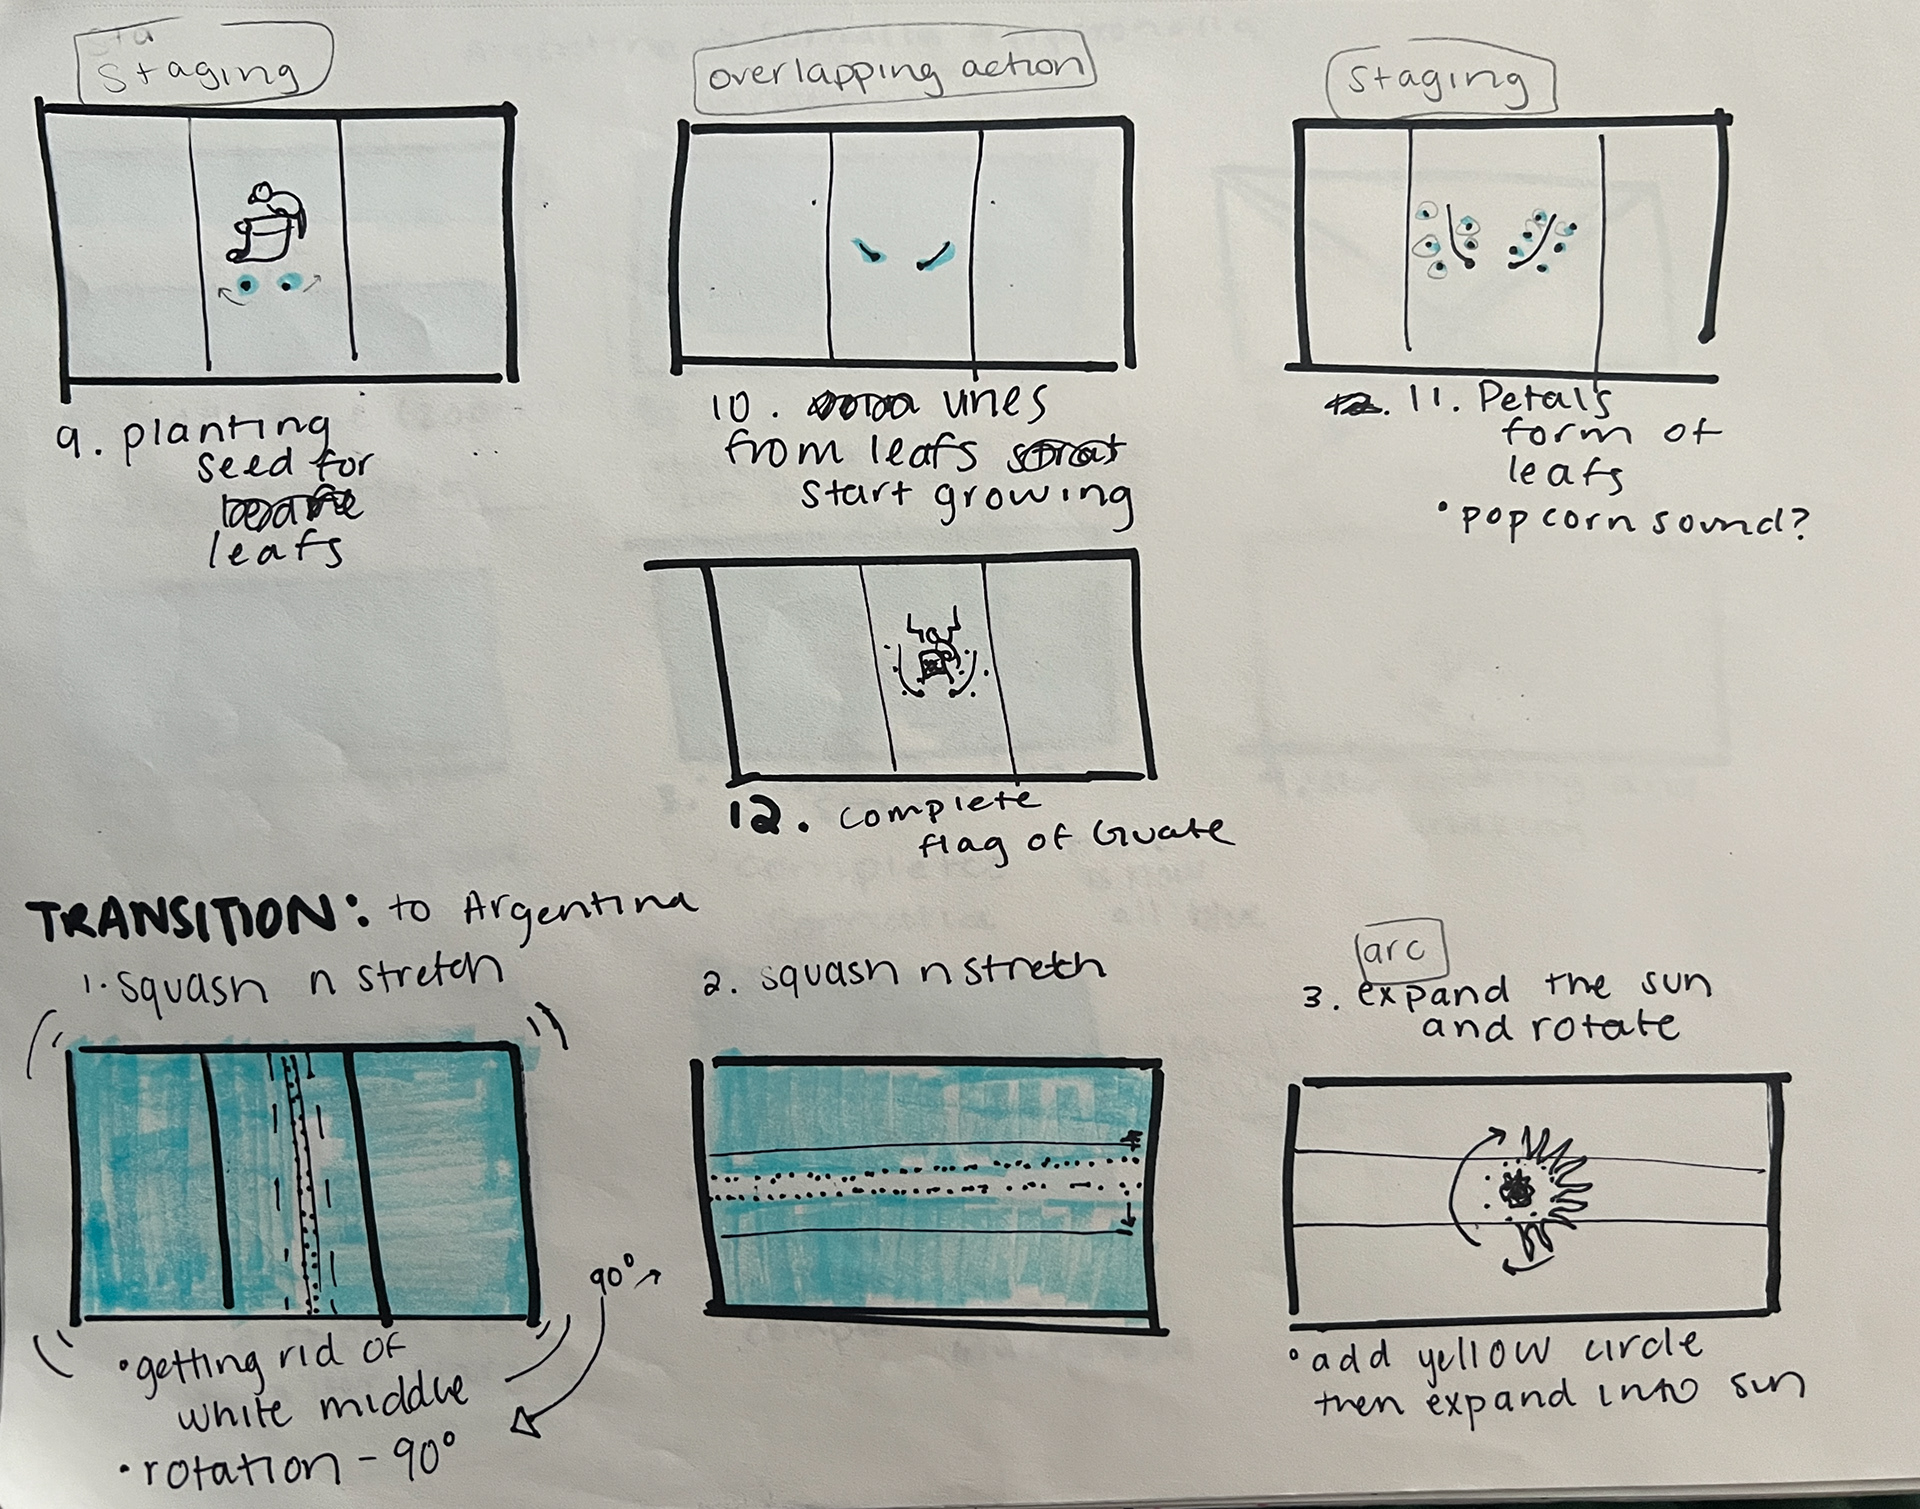 Staging
overlapping action
Staging
9. planting
seed for
leafs
10. vines
from leafs
start growing
11. Petals
form of
leafs
• popcorn sound?
12. complete
flag of Guate
TRANSITION: to Argentina
1. squash n stretch
2. squash n stretch
arc
3. expand the sun
and rotate
90°
• getting rid of
white middle
• rotation - 90°
• add yellow circle
then expand into sun